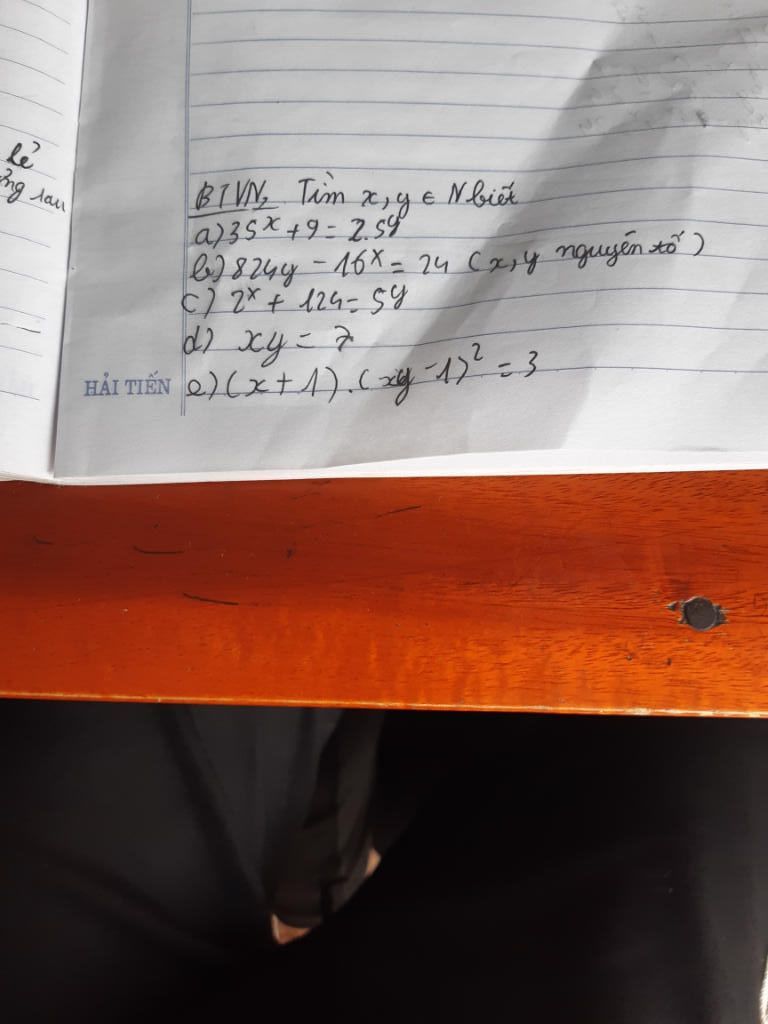 lẻ
ởng sau
BTVN2 Tìm x, y ∈ N biết
a) 35ˣ + 9 = 2.5ʸ
b) 824y - 16ˣ = 24 (x, y nguyên tố)
c) 2ˣ + 124 = 5ʸ
d) xy = 7
HẢI TIẾN e) (x + 1).(xy - 1)² = 3